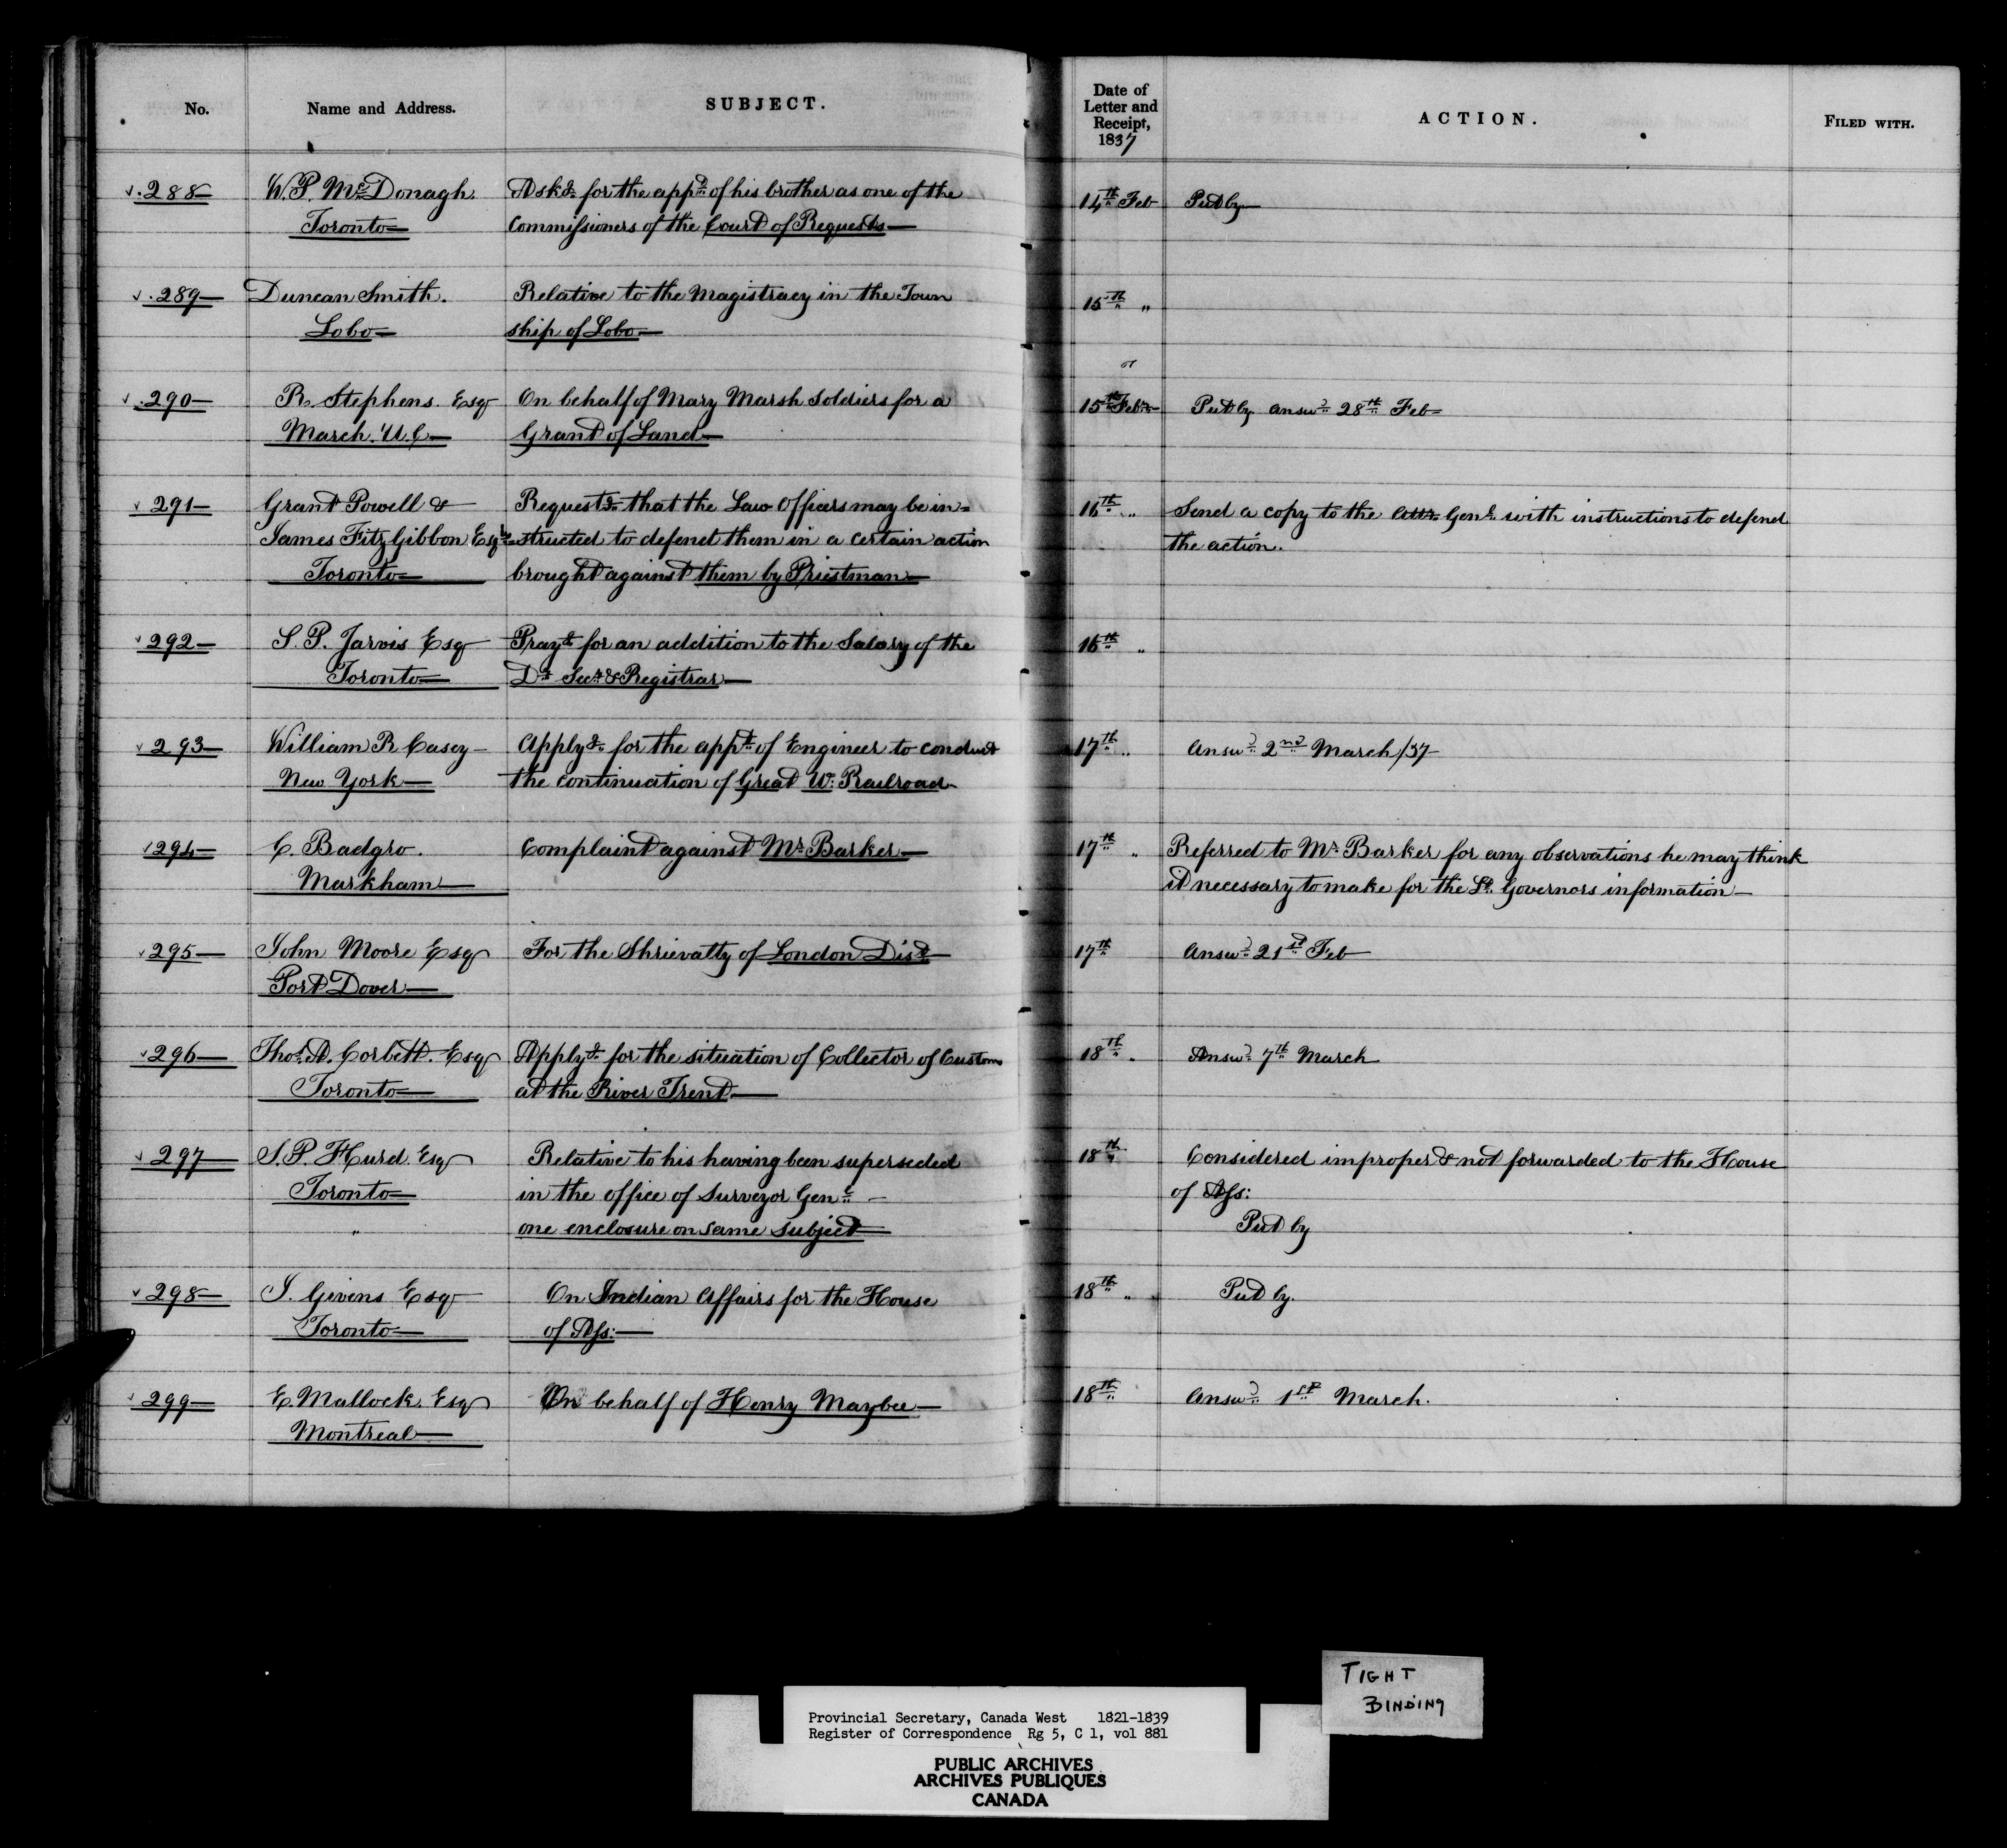 No.
Name and Address.
SUBJECT.
Date of
Letter and
Receipt,
1837
ACTION.
FILED WITH.
288
W. P. McDonagh.
Toronto
Askg for the appt of his brother as one of the
Commissioners of the Court of Requests
14th Feb
Put by
289
Duncan Smith.
Lobo
Relative to the Magistracy in the Town
ship of Lobo
15th "
290
R. Stephens. Esq
March. U.C
On behalf of Mary Marsh Soldiers for a
Grant of Land
15th Feb
Put by answd 28th Feb
291
Grant Powell &
James FitzGibbon Esqrs
Toronto
Requestg that the Law Officers may be in-
structed to defend them in a certain action
brought against them by Priestman
16th "
Send a copy to the Atty Genl with instructions to defend
the action.
292
S. P. Jarvis Esq
Toronto
Prayg for an addition to the Salary of the
Dy Secy & Registrar
16th "
293
William R Casey
New York
Applyg for the appt of Engineer to conduct
the continuation of Great Wn Railroad
17th "
Answd 2nd March/37
294
C. Badgro.
Markham
Complaint against Mr Barker
17th "
Referred to Mr Barker for any observations he may think
it necessary to make for the Lt. Governors information
295
John Moore Esq
Port Dover
For the Shrievalty of London Dist
17th
Answd 21st Feb
296
Thos A. Corbett. Esq
Toronto
Applyg for the situation of Collector of Customs
at the River Trent
18th "
Answd 7th March
297
S. P. Hurd. Esq
Toronto
"
Relative to his having been superseded
in the office of Surveyor Genl
one enclosure on same subject
18th
Considered improper & not forwarded to the House
of Ass:
Put by
298
J. Givens Esq
Toronto
On Indian Affairs for the House
of Ass:
18th "
Put by.
299
E. Mallock. Esq
Montreal
On behalf of Henry Maybee
18th
Answd 1st March.
TIGHT
BINDING
Provincial Secretary, Canada West 1821-1839
Register of Correspondence Rg 5, C 1, vol 881
PUBLIC ARCHIVES
ARCHIVES PUBLIQUES
CANADA